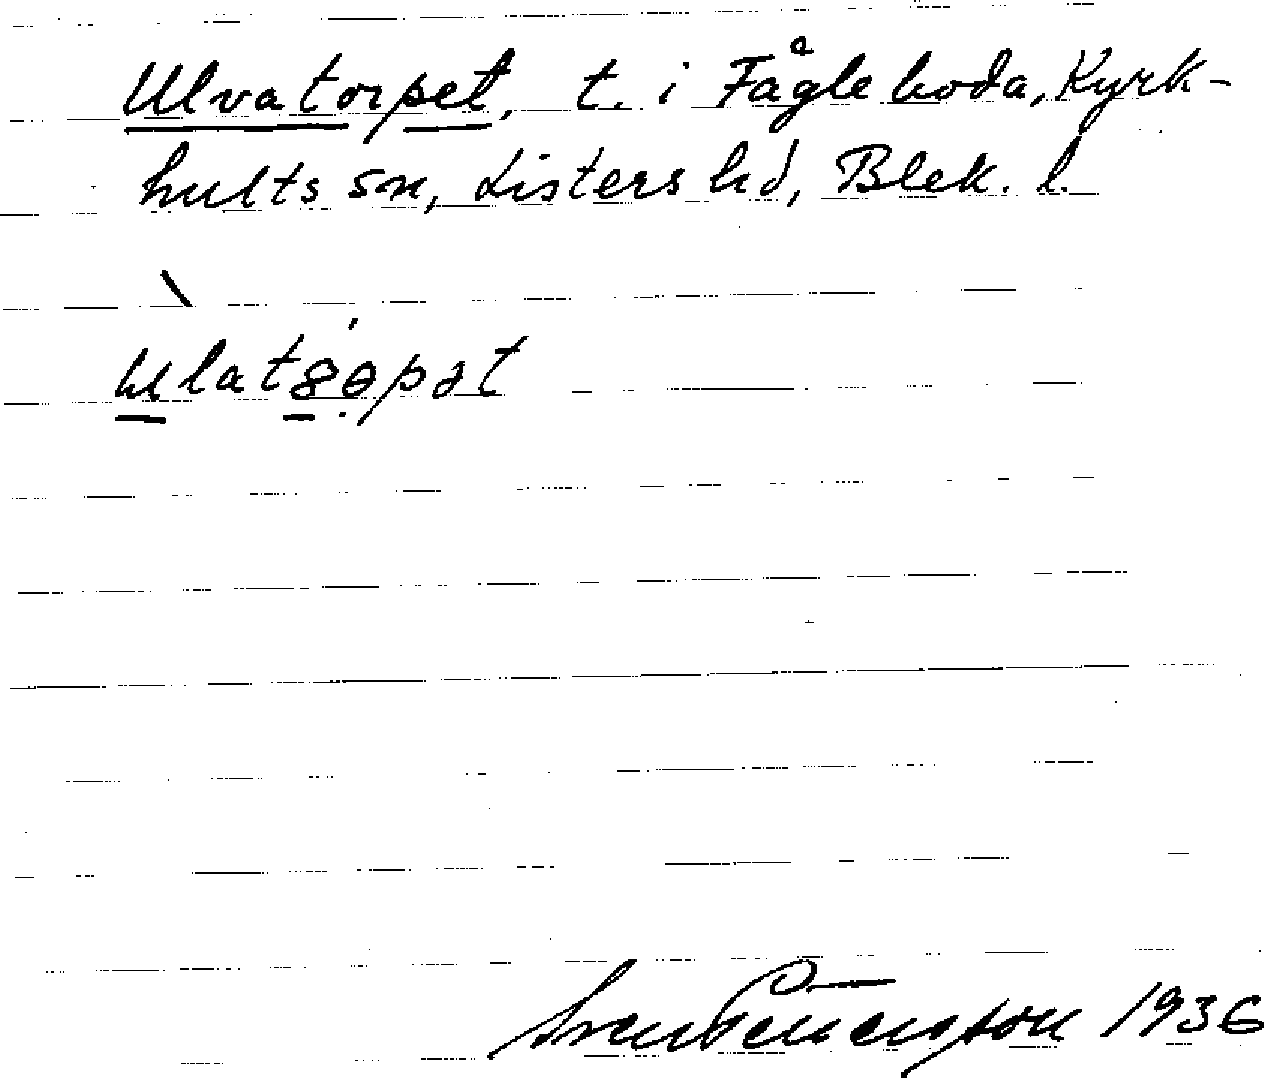 Ulvatorpet, t. i Fågleboda, Kyrk-
hults sn, Listers hd, Blek. l.
ulatȣɵpət
Sven Benson 1936